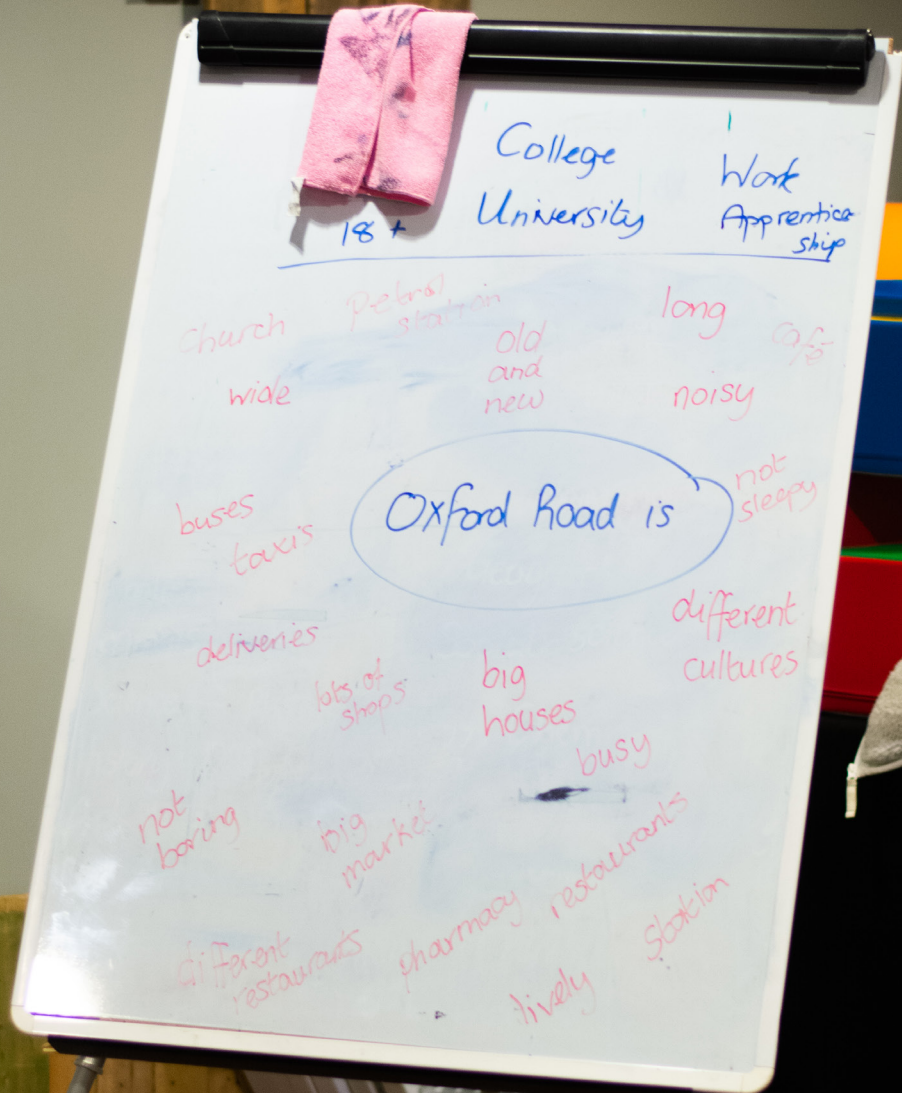 College
University
Work
Apprentice
ship
18 +
Church
Petrol
station
old
and
new
long
café
wide
noisy
buses
taxis
Oxford Road is
not
sleepy
deliveries
lots of
shops
big
houses
different
cultures
busy
not
boring
big
market
restaurants
different
restaurants
pharmacy
station
lively